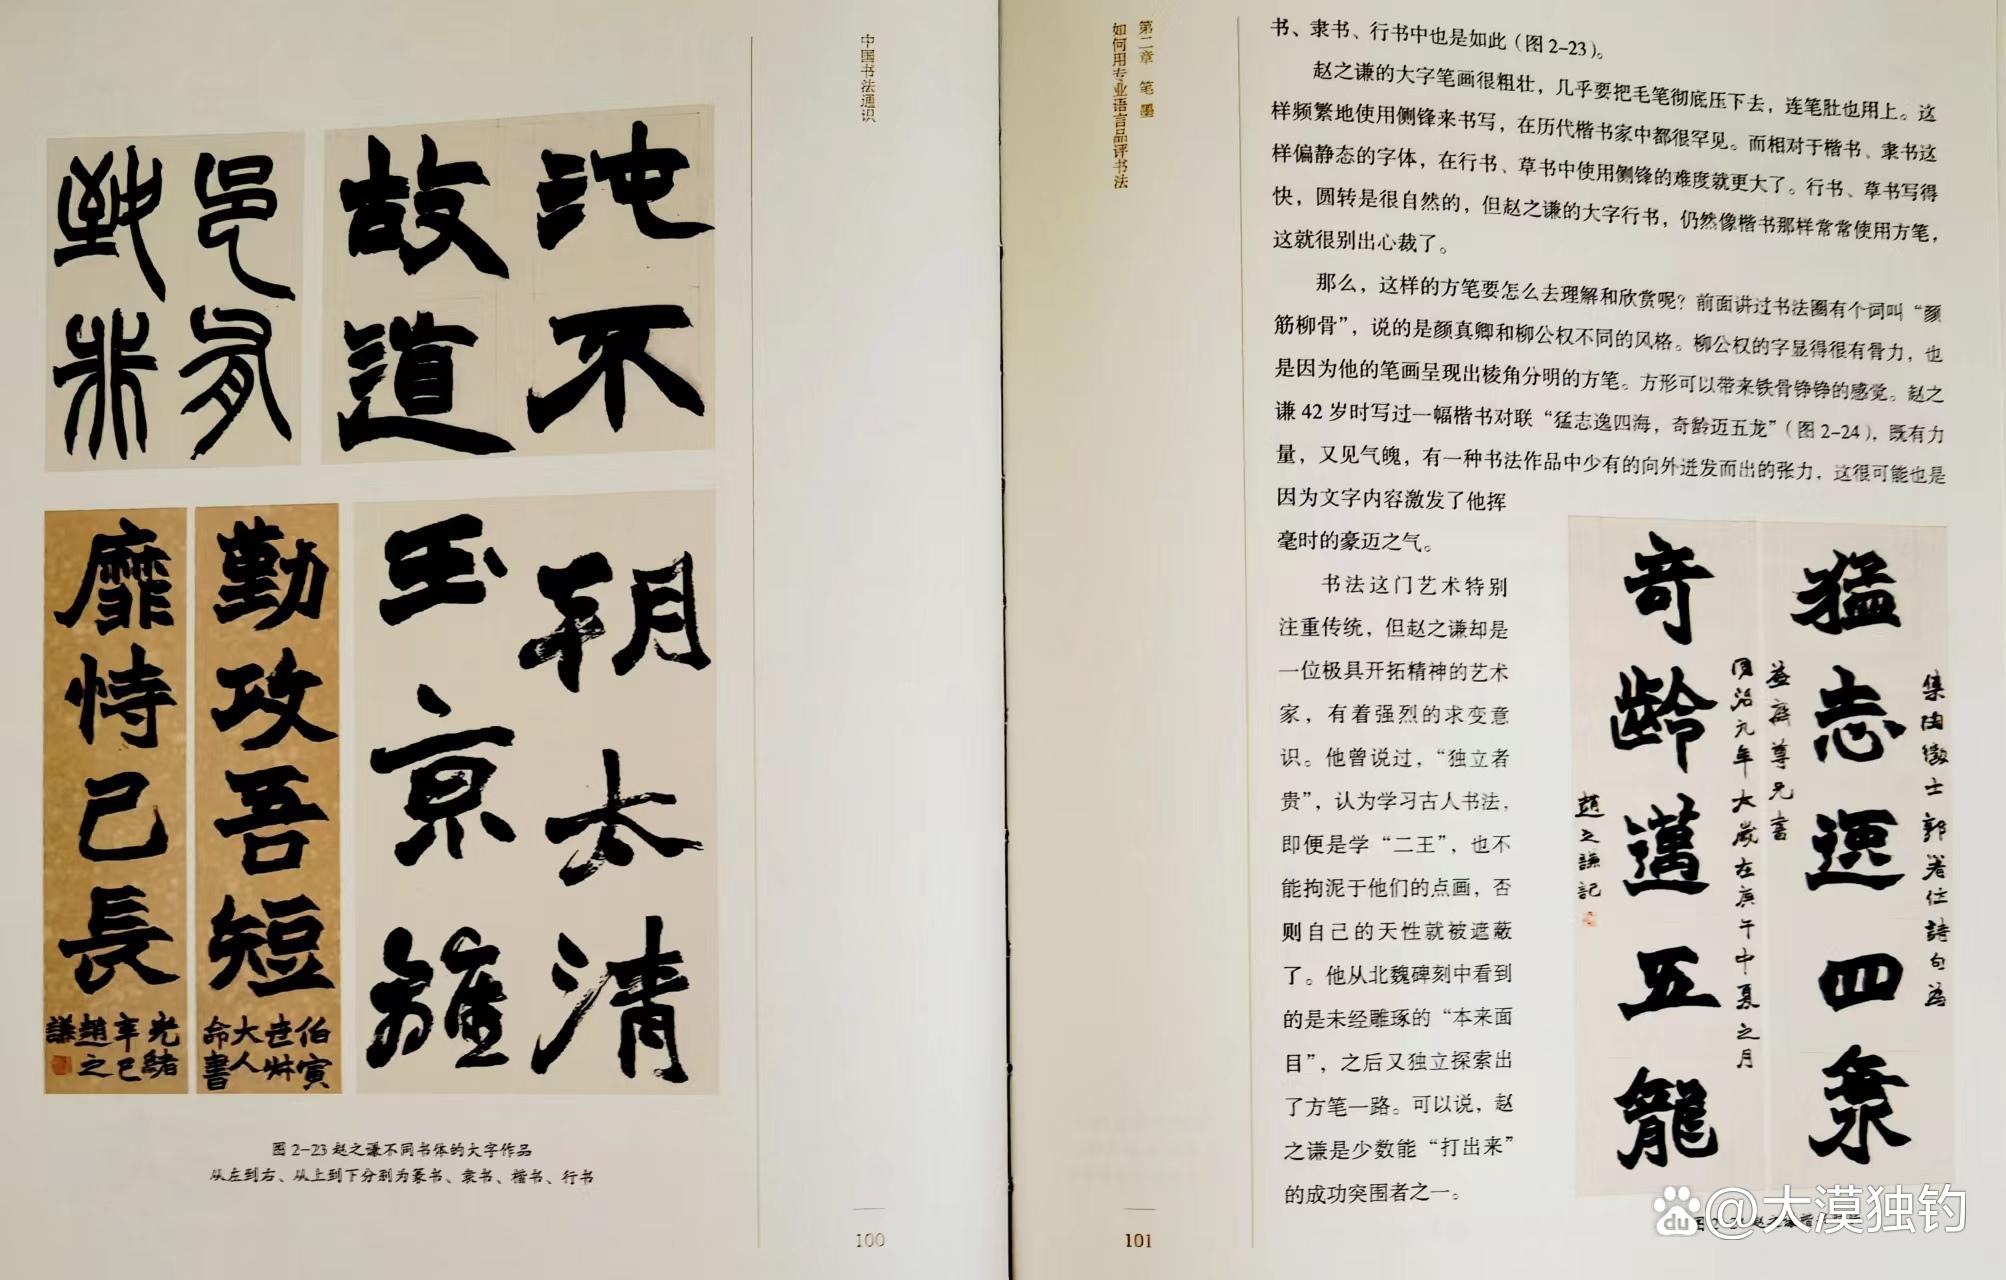 中国书法通识
邑有
沈不
故道
朝太清
玉京
勤攻吾短
伯寅
世丈
大人
命书
靡恃己長
光緒
辛巳
趙之
謙
图 2-23 赵之谦不同书体的大字作品
从左到右、从上到下分别为篆书、隶书、楷书、行书
100
第二章 笔墨
如何用专业语言品评书法
书、隶书、行书中也是如此（图 2-23）。
赵之谦的大字笔画很粗壮，几乎要把毛笔彻底压下去，连笔肚也用上。这
样频繁地使用侧锋来书写，在历代楷书家中都很罕见。而相对于楷书、隶书这
样偏静态的字体，在行书、草书中使用侧锋的难度就更大了。行书、草书写得
快，圆转是很自然的，但赵之谦的大字行书，仍然像楷书那样常常使用方笔，
这就很别出心裁了。
那么，这样的方笔要怎么去理解和欣赏呢？前面讲过书法圈有个词叫“颜
筋柳骨”，说的是颜真卿和柳公权不同的风格。柳公权的字显得很有骨力，也
是因为他的笔画呈现出棱角分明的方笔。方形可以带来铁骨铮铮的感觉。赵之
谦 42 岁时写过一幅楷书对联“猛志逸四海，奇龄迈五龙”（图 2-24），既有力
量，又见气魄，有一种书法作品中少有的向外迸发而出的张力，这很可能也是
因为文字内容激发了他挥
毫时的豪迈之气。
书法这门艺术特别
注重传统，但赵之谦却是
一位极具开拓精神的艺术
家，有着强烈的求变意
识。他曾说过，“独立者
贵”，认为学习古人书法，
即便是学“二王”，也不
能拘泥于他们的点画，否
则自己的天性就被遮蔽
了。他从北魏碑刻中看到
的是未经雕琢的“本来面
目”，之后又独立探索出
了方笔一路。可以说，赵
之谦是少数能“打出来”
的成功突围者之一。
集陶徵士郭 詩句為
猛志逸四海
益齋尊兄書
同治九年太歲在庚午中夏之月
奇齡邁五龍
趙之謙記
101
@大漠独钓